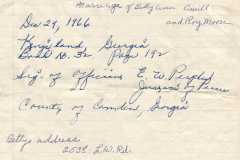 Marriage of Betty Ann Quill
and Roy Moore
Dec 29, 1966
Kingsland Georgia
Book No. 32 Page 192
Sig. of Officiating E. W.
County of Camden, Georgia
Betty's address
2538 L.W. Rd.